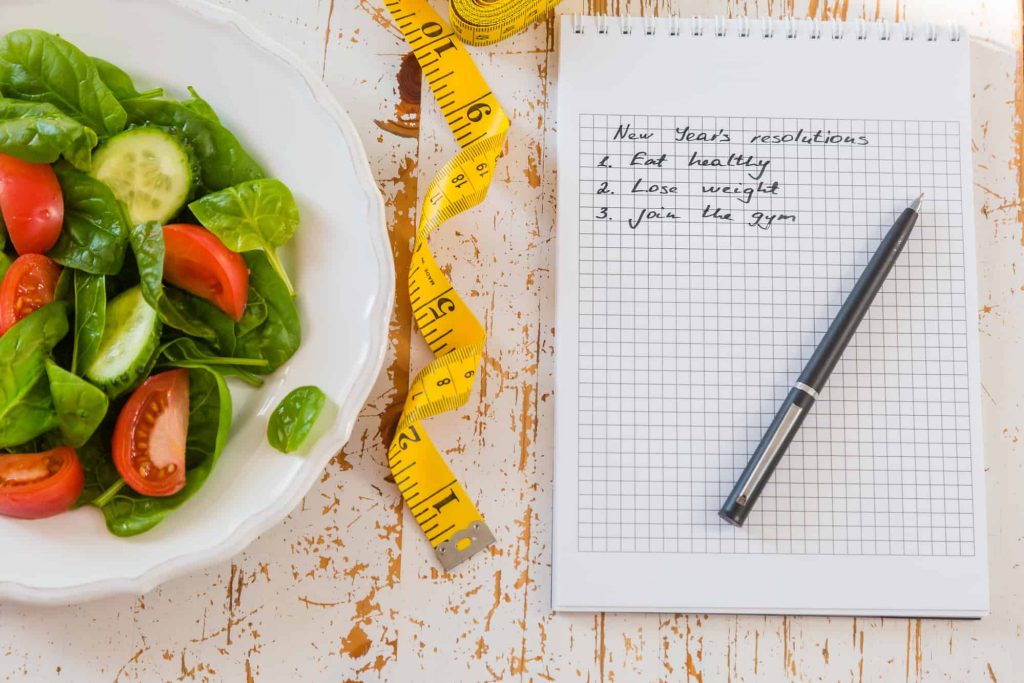 New Year's resolutions
1. Eat healthy
2. Lose weight
3. Join the gym
10
9
19
18
5
8
2
1